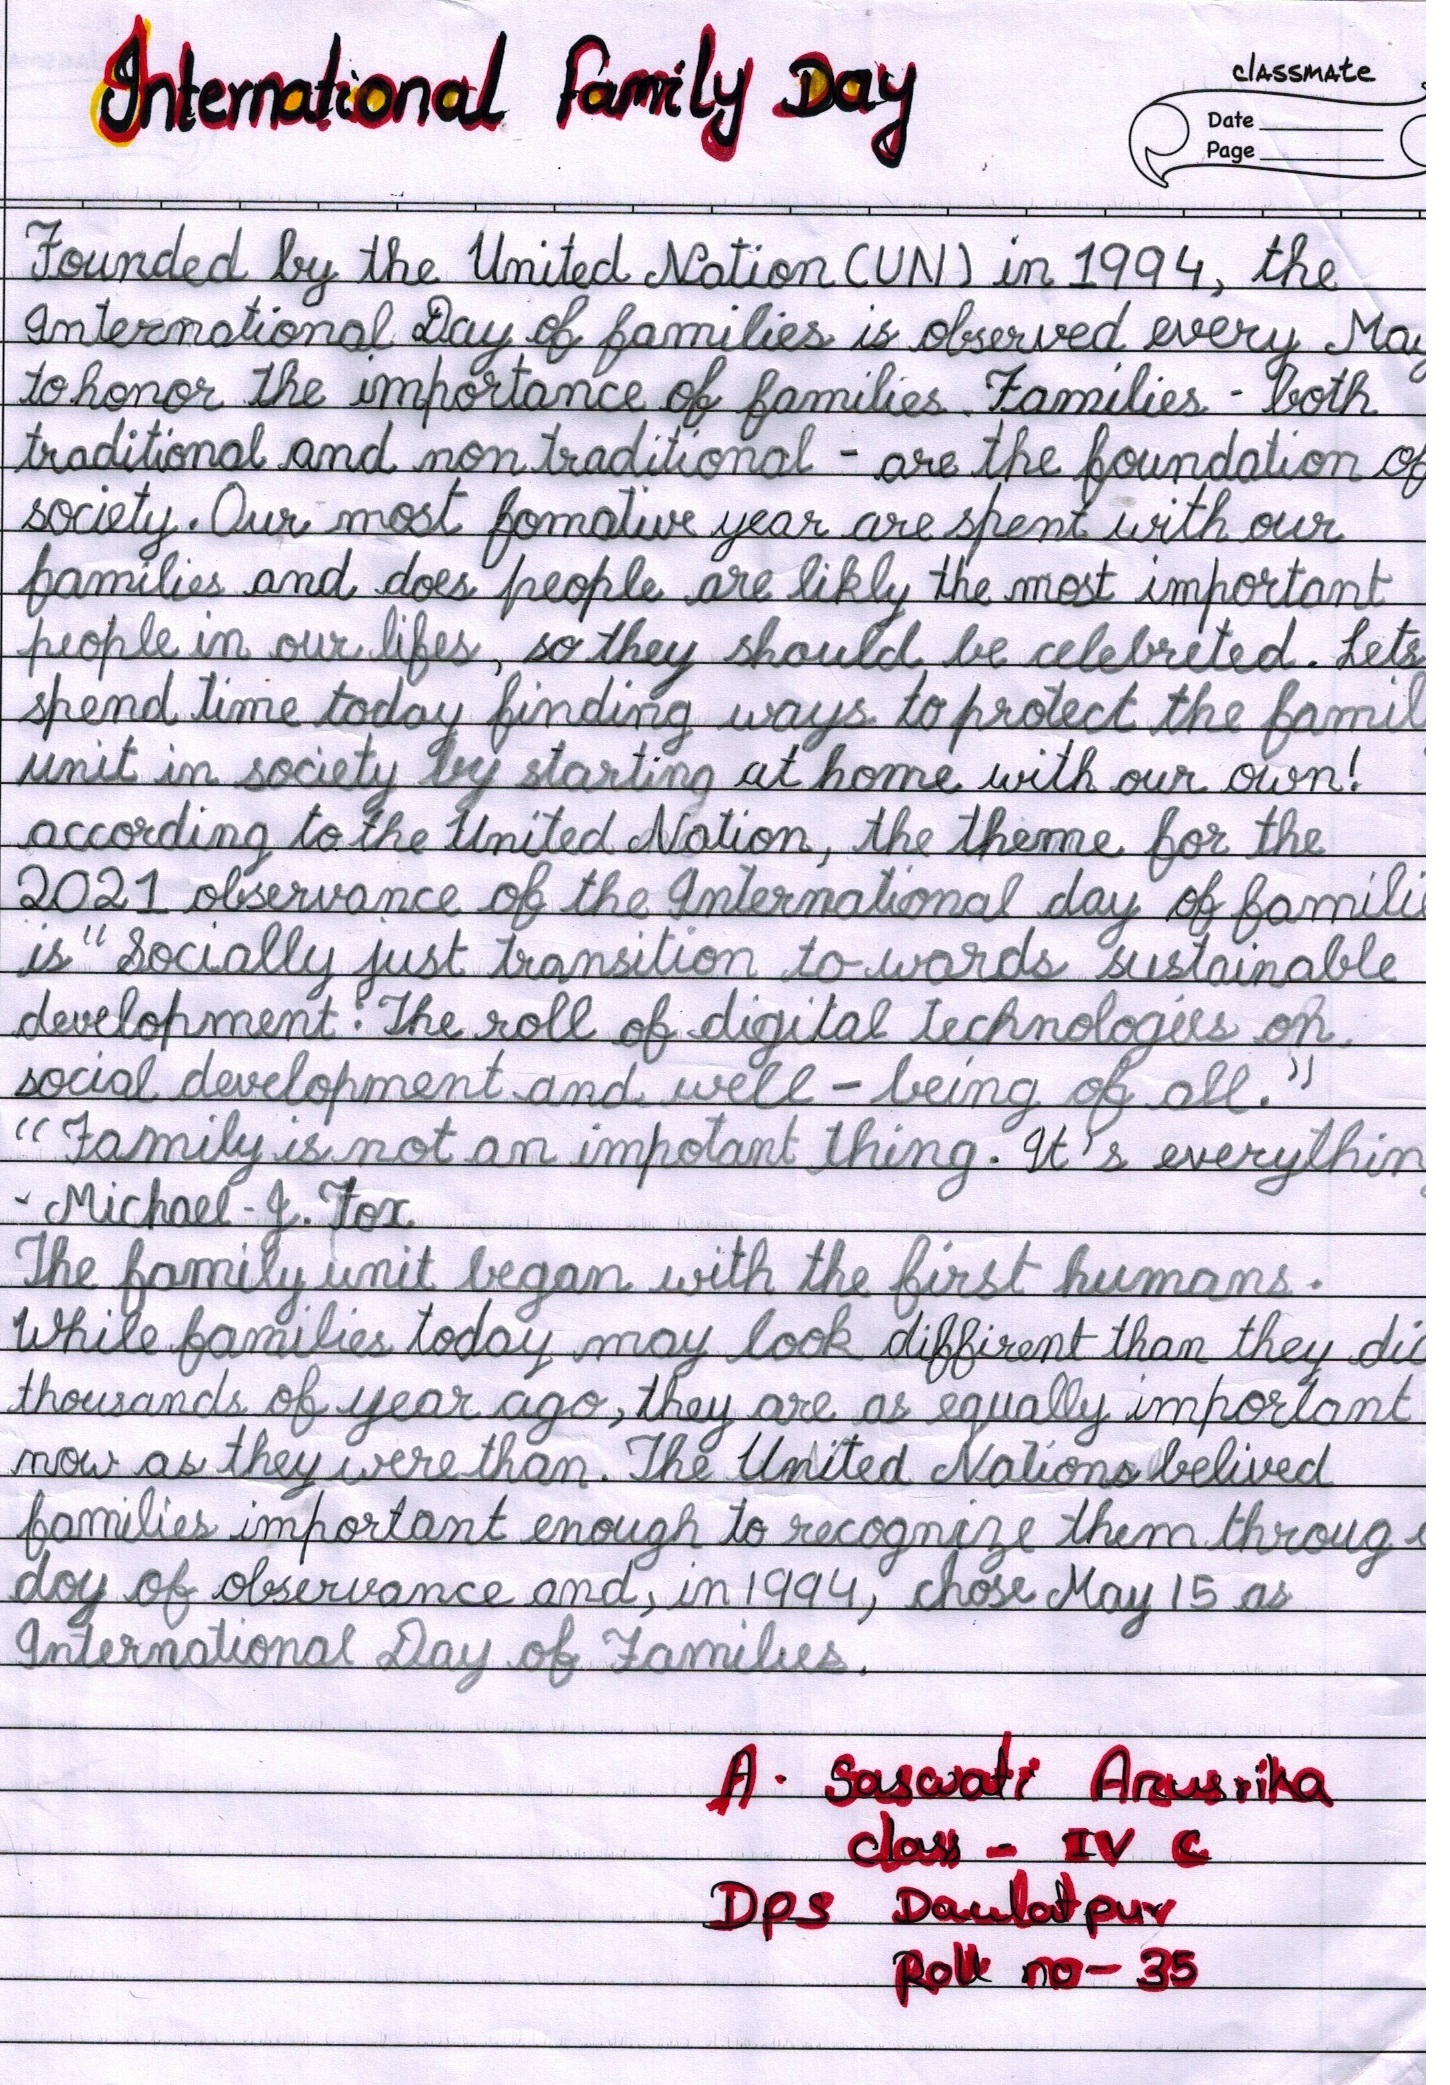 International Family Day
classmate
Date
Page
Founded by the United Nation (UN) in 1994, the
International Day of families is observed every May
to honor the importance of families. Families - both
traditional and non traditional - are the foundation of
society. Our most fomative year are spent with our
families and does people are likly the most important
people in our lifes, so they should be celebreted. Lets
spend time today finding ways to protect the famil
unit in society by starting at home with our own!
according to the United Nation, the theme for the
2021 observance of the International day of familie
is "Socially just transition to-wards sustainable
development: The roll of digital technologies on
social development and well - being of all."
"Family is not an impotant thing. It's everythin
- Michael - J. Fox
The family unit began with the first humans.
While families today may look diffirent than they did
thousands of year ago, they are as equally important
now as they were than. The United Nations belived
families important enough to recognize them throug
doy of observance and, in 1994, chose May 15 as
International Day of Families.
A. Saswati Anusrika
class - IV C
Dps Daulatpur
Roll no - 35